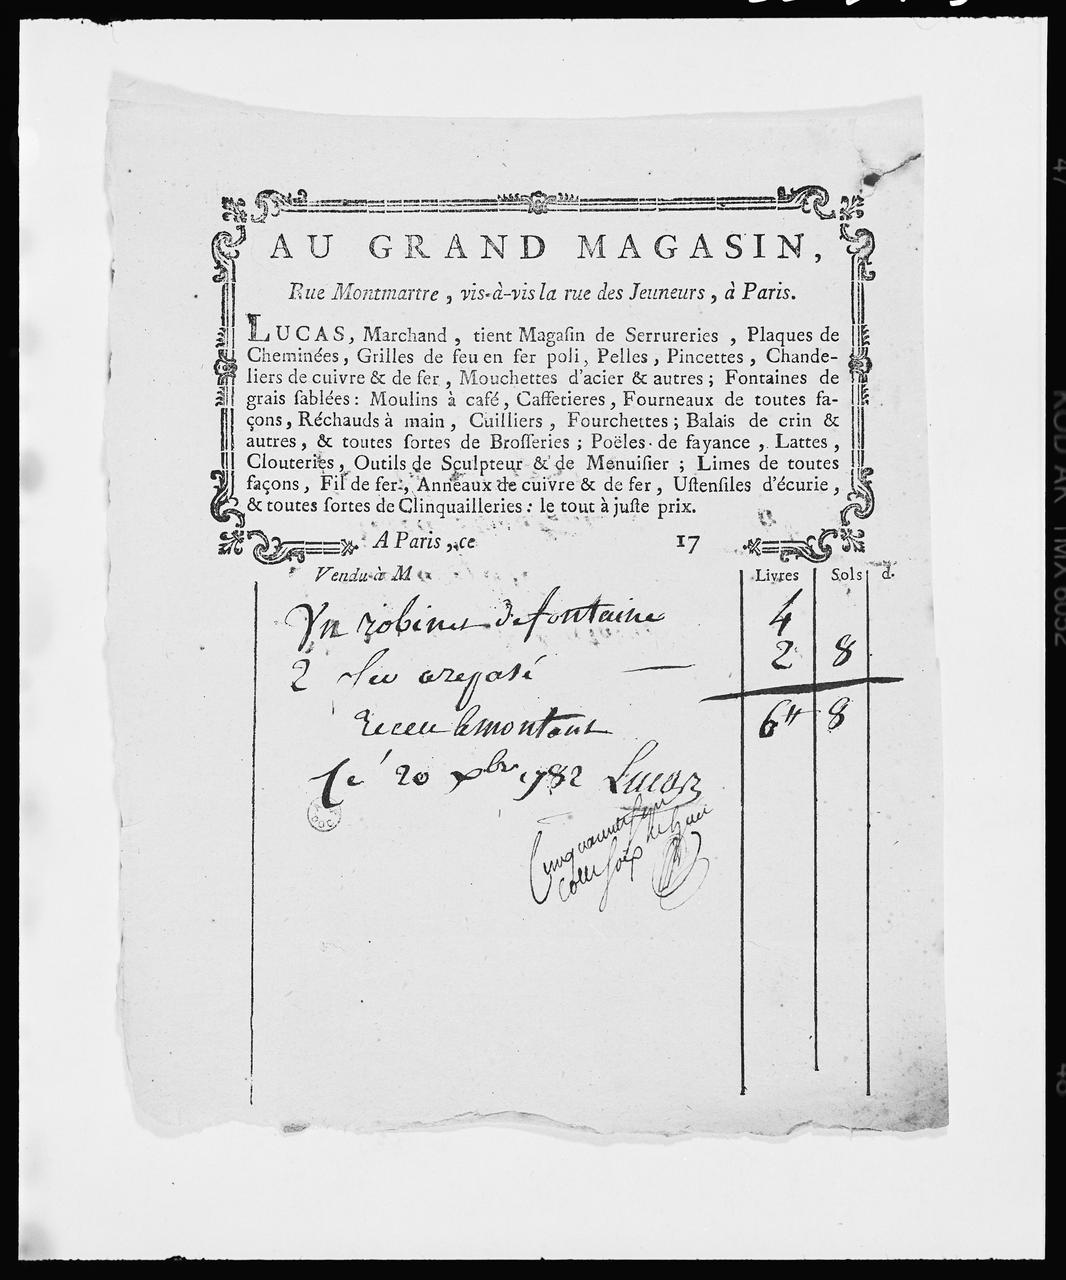 AU GRAND MAGASIN,
Rue Montmartre, vis-à-vis la rue des Jeuneurs, à Paris.
LUCAS, Marchand, tient Magaſin de Serrureries, Plaques de
Cheminées, Grilles de feu en fer poli, Pelles, Pincettes, Chande-
liers de cuivre & de fer, Mouchettes d'acier & autres; Fontaines de
grais ſablées: Moulins à café, Caffetieres, Fourneaux de toutes fa-
çons, Réchauds à main, Cuilliers, Fourchettes; Balais de crin &
autres, & toutes ſortes de Broſſeries; Poëles de fayance, Lattes,
Clouteries, Outils de Sculpteur & de Menuiſier; Limes de toutes
façons, Fil de fer, Anneaux de cuivre & de fer, Uſtenſiles d'écurie,
& toutes ſortes de Clinquailleries: le tout à juſte prix.
A Paris, ce 17
Vendu à M Livres Sols d.
Un robinet de fontaine 4
2 arepasé 2 8
6 8
Receu le montant
Ce 20 xbre 1782 Lucas
47
KODAK TMX 6052
48